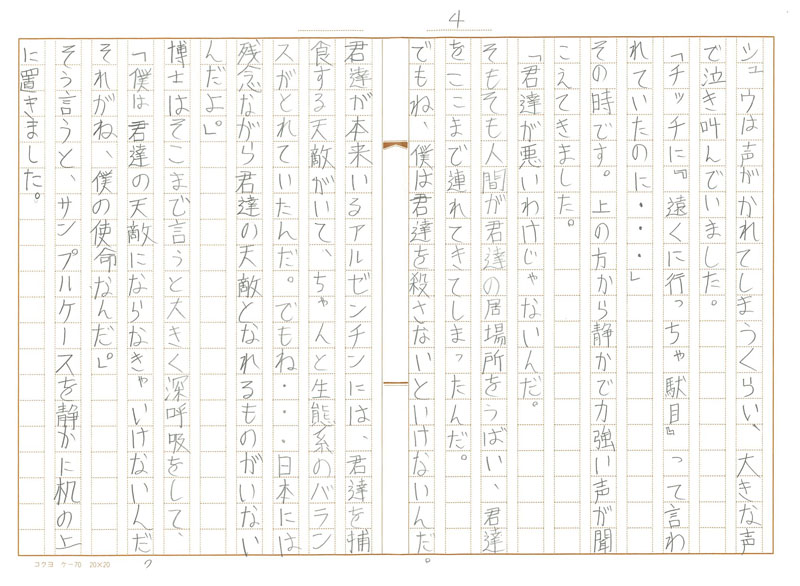 4
シュウは声がかれてしまうくらい、大きな声
で泣き叫んでいました。
「チッチに『遠くに行っちゃ駄目』って言わ
れていたのに・・・」
その時です。上の方から静かで力強い声が聞
こえてきました。
「君達が悪いわけじゃないんだ。
そもそも人間が君達の居場所をうばい、君達
をここまで連れてきてしまったんだ。
でもね、僕は君達を殺さないといけないんだ。
君達が本来いるアルゼンチンには、君達を捕
食する天敵がいて、ちゃんと生態系のバラン
スがとれていたんだ。でもね・・・日本には
残念ながら君達の天敵となれるものがいない
んだよ。」
博士はそこまで言うと大きく深呼吸をして、
「僕は君達の天敵にならなきゃいけないんだ。
それがね、僕の使命なんだ。」
そう言うと、サンプルケースを静かに机の上
に置きました。
コクヨ ケー70 20×20